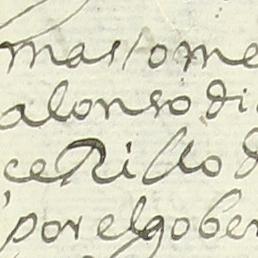 mas / ome
alonso di
ceRillo d
por el gober